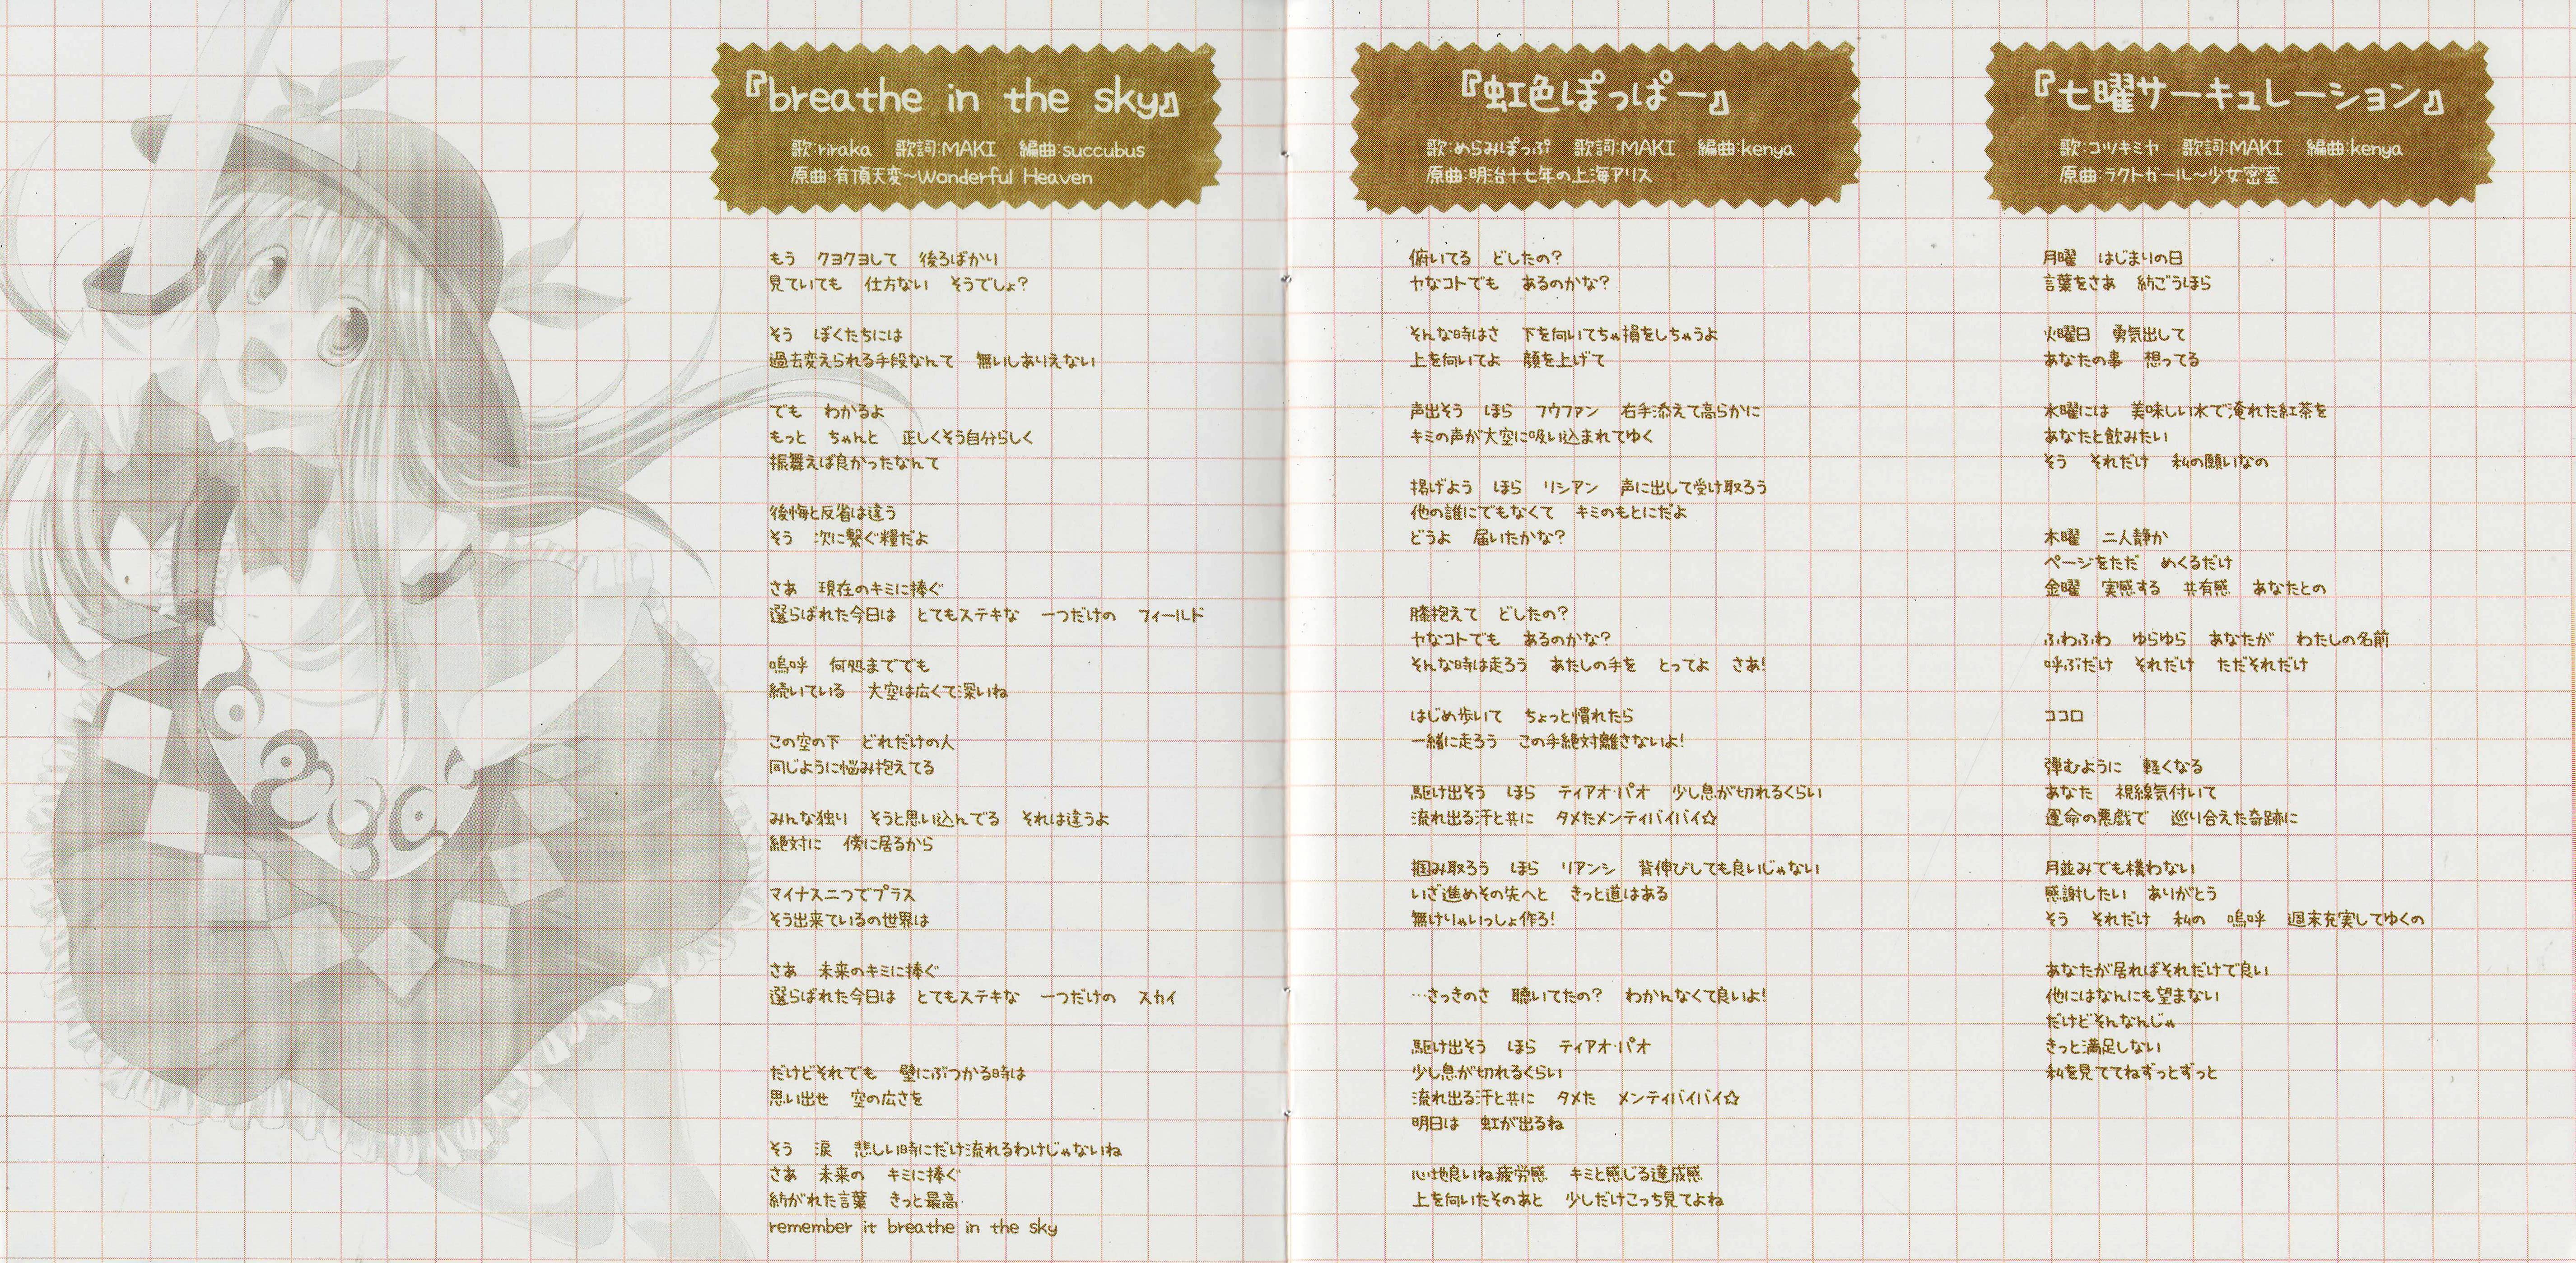 『breathe in the sky』
歌:riraka 歌詞:MAKI 編曲:succubus
原曲:有頂天変～Wonderful Heaven
もう クヨクヨして 後ろばかり
見ていても 仕方ない そうでしょ?
そう ぼくたちには
過去変えられる手段なんて 無いしありえない
でも わかるよ
もっと ちゃんと 正しくそう自分らしく
振舞えば良かったなんて
後悔と反省は違う
そう 次に繋ぐ糧だよ
さあ 現在のキミに捧ぐ
選らばれた今日は とてもステキな 一つだけの フィールド
嗚呼 何処まででも
続いている 大空は広くて深いね
この空の下 どれだけの人
同じように悩み抱えてる
みんな独り そうと思い込んでる それは違うよ
絶対に 傍に居るから
マイナス二つでプラス
そう出来ているの世界は
さあ 未来のキミに捧ぐ
選らばれた今日は とてもステキな 一つだけの スカイ
だけどそれでも 壁にぶつかる時は
思い出せ 空の広さを
そう 涙 悲しい時にだけ流れるわけじゃないね
さあ 未来の キミに捧ぐ
紡がれた言葉 きっと最高
remember it breathe in the sky
『虹色ぽっぱー』
歌:めらみぽっぷ 歌詞:MAKI 編曲:kenya
原曲:明治十七年の上海アリス
俯いてる どしたの?
ヤなコトでも あるのかな?
そんな時はさ 下を向いてちゃ損をしちゃうよ
上を向いてよ 顔を上げて
声出そう ほら フウファン 右手添えて高らかに
キミの声が大空に吸い込まれてゆく
掲げよう ほら リシアン 声に出して受け取ろう
他の誰にでもなくて キミのもとにだよ
どうよ 届いたかな?
膝抱えて どしたの?
ヤなコトでも あるのかな?
そんな時は走ろう あたしの手を とってよ さあ!
はじめ歩いて ちょっと慣れたら
一緒に走ろう この手絶対離さないよ!
駆け出そう ほら ティアオ·パオ 少し息が切れるくらい
流れ出る汗と共に タメたメンティバイバイ☆
掴み取ろう ほら リアンシ 背伸びしても良いじゃない
いざ進めその先へと きっと道はある
無けりゃいっしょ作ろ!
…さっきのさ 聴いてたの? わかんなくて良いよ!
駆け出そう ほら ティアオ·パオ
少し息が切れるくらい
流れ出る汗と共に タメた メンティバイバイ☆
明日は 虹が出るね
心地良いね疲労感 キミと感じる達成感
上を向いたそのあと 少しだけこっち見てよね
『七曜サーキュレーション』
歌:コツキミヤ 歌詞:MAKI 編曲:kenya
原曲:ラクトガール～少女密室
月曜 はじまりの日
言葉をさあ 紡ごうほら
火曜日 勇気出して
あなたの事 想ってる
水曜には 美味しい水で淹れた紅茶を
あなたと飲みたい
そう それだけ 私の願いなの
木曜 二人静か
ページをただ めくるだけ
金曜 実感する 共有感 あなたとの
ふわふわ ゆらゆら あなたが わたしの名前
呼ぶだけ それだけ ただそれだけ
ココロ
弾むように 軽くなる
あなた 視線気付いて
運命の悪戯で 巡り合えた奇跡に
月並みでも構わない
感謝したい ありがとう
そう それだけ 私の 嗚呼 週末充実してゆくの
あなたが居ればそれだけで良い
他にはなんにも望まない
だけどそんなんじゃ
きっと満足しない
私を見ててねずっとずっと